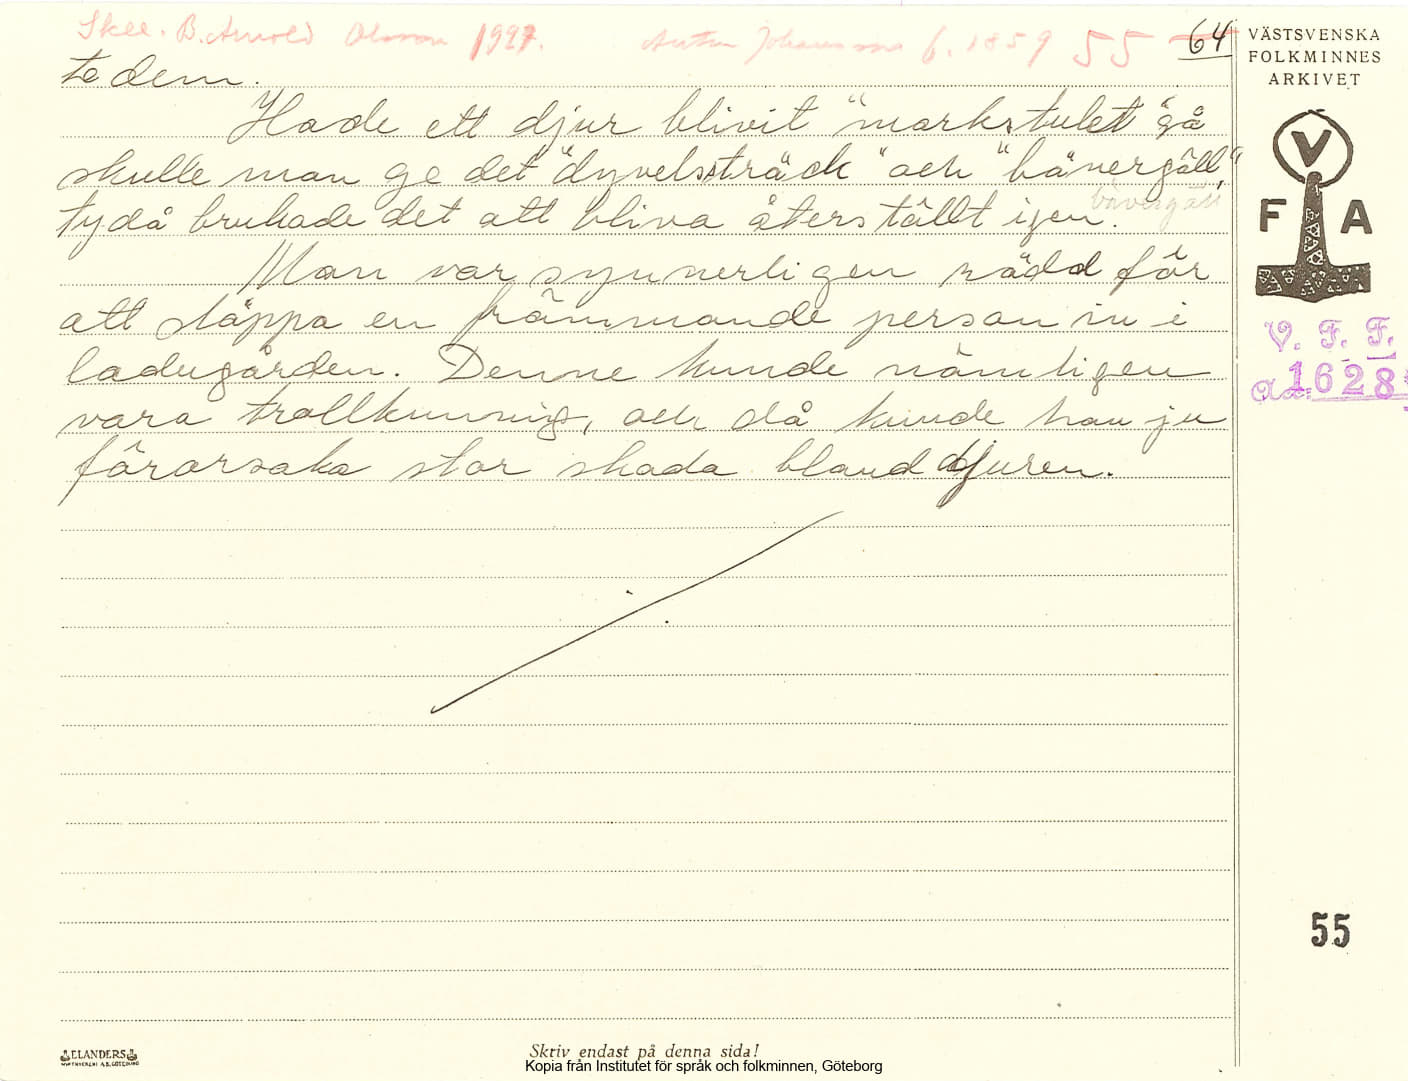 Skee. B. Arnold Olsson 1927. Anton Johansson f. 1859 55 64
te dem.
Hade ett djur blivit "markstulet" så
skulle man ge det "dyvelsträck" och "bävergäll",
ty då brukade det att bliva återställt igen. bävergäll
Man var synnerligen rädd för
att släppa en främmande person in i
ladugården. Denne kunde nämligen
vara trollkunnig, och då kunde han ju
förorsaka stor skada bland djuren.
VÄSTSVENSKA
FOLKMINNES
ARKIVET
V
F A
V. F. F.
1628
55
ELANDERS
Skriv endast på denna sida!
Kopia från Institutet för språk och folkminnen, Göteborg